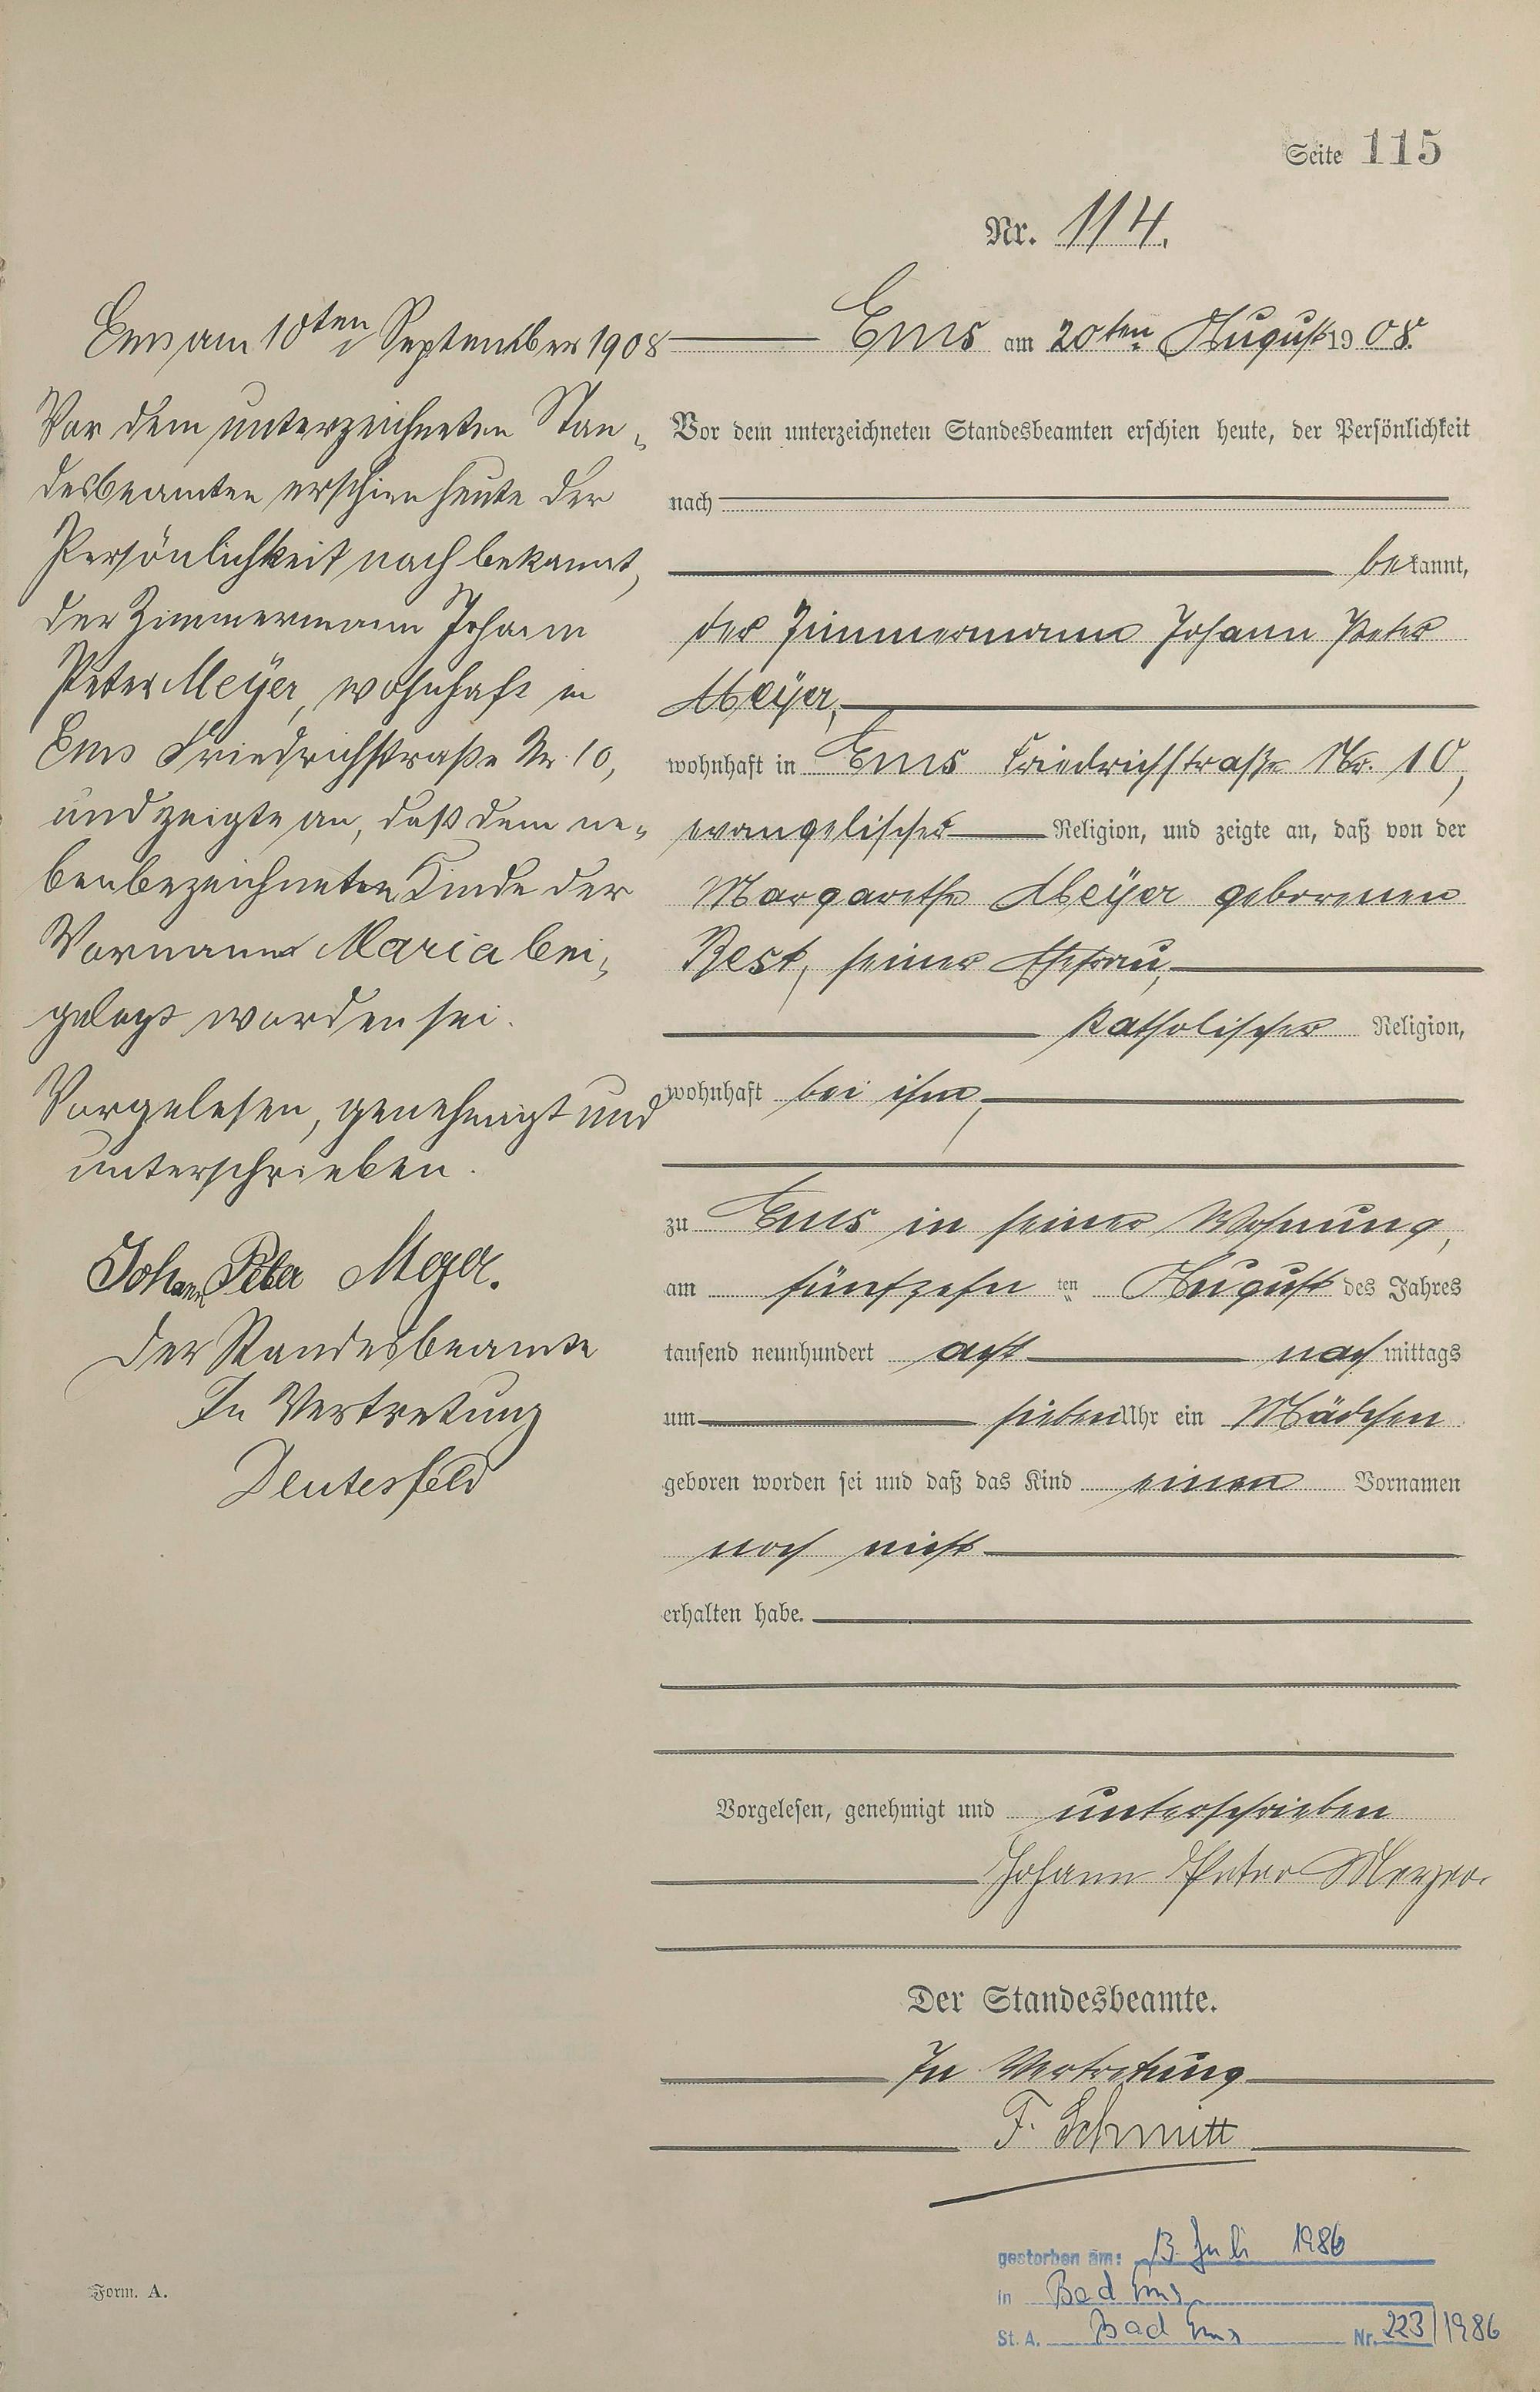 Seite 115
Nr. 114.
Ems am 10ten September 1908
Vor dem unterzeichneten Stan„
desbeamten erschien heute der
Persönlichkeit nach bekannt,
der Zimmermann Johann
Peter Meÿer, wohnhaft in
Ems Friedrichstraße Nr. 10,
und zeigte an, daß dem ne„
benbezeichneten Kinde der
Vorname Maria bei„
gelegt worden sei.
Vorgelesen, genehmigt und
unterschrieben.
Johann Peter Meyer.
Der Standesbeamte
In Vertretung
Deutesfeld
Ems am 20ten August 1908.
Vor dem unterzeichneten Standesbeamten erschien heute, der Persönlichkeit
nach
bekannt,
der Zimmermann Johann Peter
Meÿer,
wohnhaft in Ems Friedrichstraße Nr. 10,
evangelischer Religion, und zeigte an, daß von der
Margarethe Meÿer geborenen
Best, seiner Ehefrau,
katholischer Religion,
wohnhaft bei ihm,
zu Ems in seiner Wohnung,
am fünfzehn ten August des Jahres
tausend neunhundert acht nachmittags
um sieben Uhr ein Mädchen
geboren worden sei und daß das Kind einen Vornamen
noch nicht
erhalten habe.
Vorgelesen, genehmigt und unterschrieben
Johann Peter Meyer.
Der Standesbeamte.
In Vertretung
F. Schmitt
gestorben am: 13. Juli 1986
in Bad Ems
St. A. Bad Ems Nr. 223/1986
Form. A.